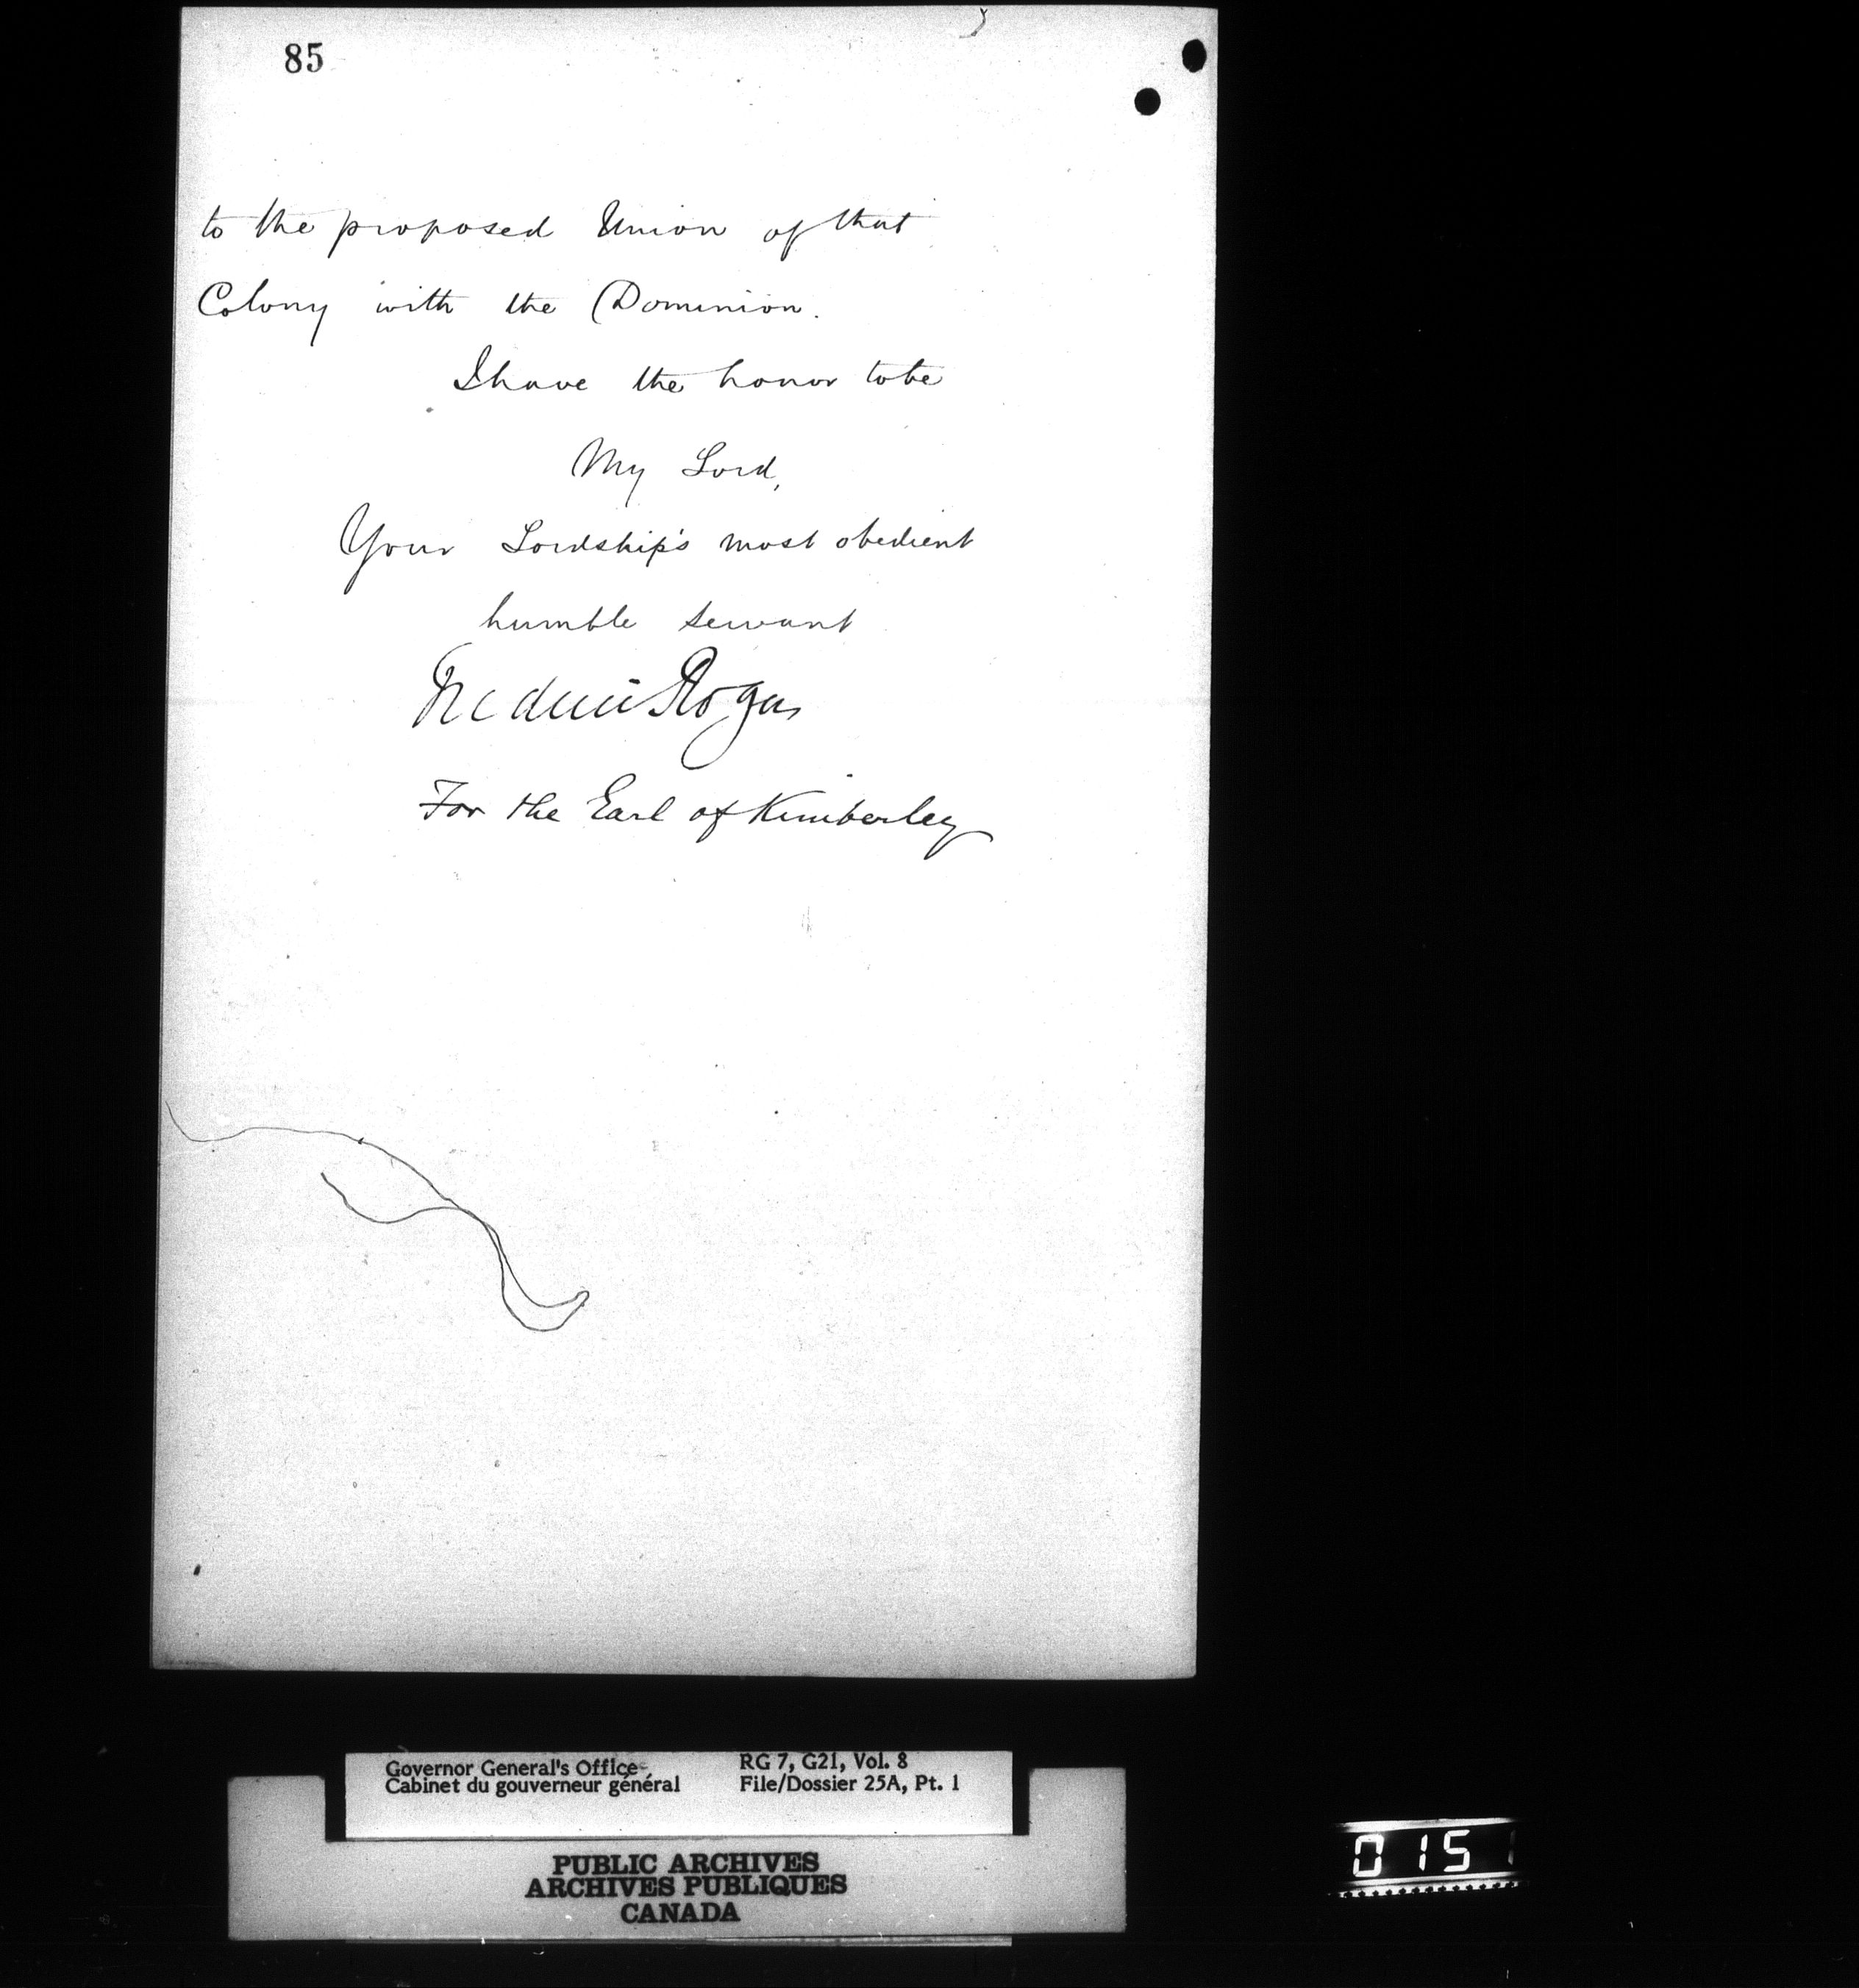 85
to the proposed Union of that
Colony with the Dominion.
I have the honor to be
My Lord,
Your Lordship's most obedient
humble servant
Frederic Rogers
For the Earl of Kimberley
Governor General's Office
Cabinet du gouverneur général
RG 7, G21, Vol. 8
File/Dossier 25A, Pt. 1
PUBLIC ARCHIVES
ARCHIVES PUBLIQUES
CANADA
0151